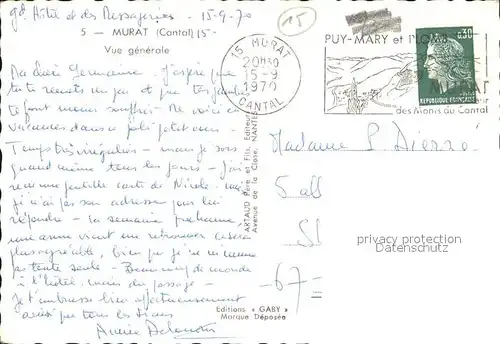 gd Hôtel des Messageries - 15-9-70
5 — MURAT (Cantal) 15
Vue générale
15 MURAT
20H30
15-9
1970
CANTAL
PUY-MARY et
des Monts du Cantal
0,30
REPUBLIQUE FRANÇAISE
15
Ma chère Germaine - j'espère que
tu te remets un peu et que tes jambes
te font moins souffrir - Me voici en
vacances dans ce joli petit coin -
Temps très irrégulier - mais je sors
quand même tous les jours - J'ai
reçu une gentille carte de Nicole - mais
je n'ai pas son adresse pour lui
répondre - La semaine prochaine
une amie vient me retrouver ce sera
plus agréable, bien que je ne me sens
pas toute seule - Beaucoup de monde
à l'hôtel, mais du passage -
Je t'embrasse bien affectueusement
ainsi que tous les tiens
ARTAUD Père et Fils, Editeurs
Avenue de la Close, NANTES
Madame
5 all
67
privacy protection
Datenschutz
Editions « GABY »
Marque Déposée